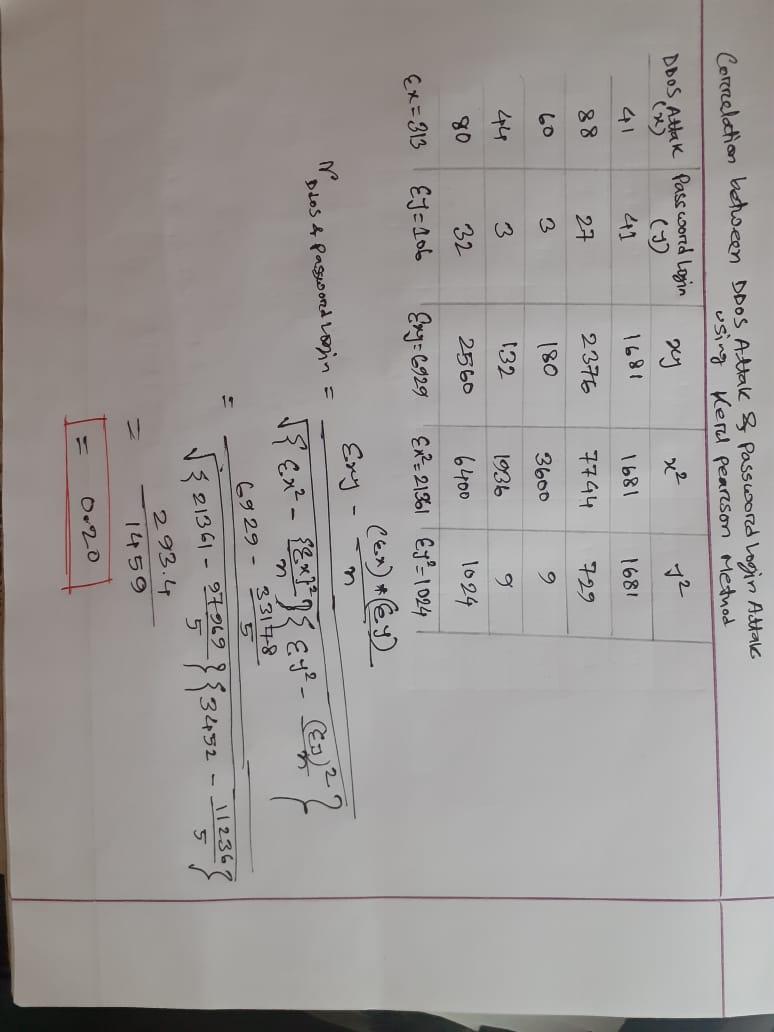 Correlation between DDOS Attak & Password Login Attaks
using Kerd pearson Method
DDOS Attak (x) Password Login (y) xy x² y²
41 41 1681 1681 1681
88 27 2376 7744 729
60 3 180 3600 9
44 3 132 1936 9
80 32 2560 6400 1024
Σx=313 Σy=106 Σxy=6929 Σx²=21361 Σy²=1024
r DDOS & Password Login = Σxy - (Σx)*(Σy)/n
√{Σx² - {Σx}²/n}{Σy² - (Σy)²/n}
= 6929 - 33178/5
√{21361 - 97969/5}{3452 - 11236/5}
= 293.4/1459
= 0.20